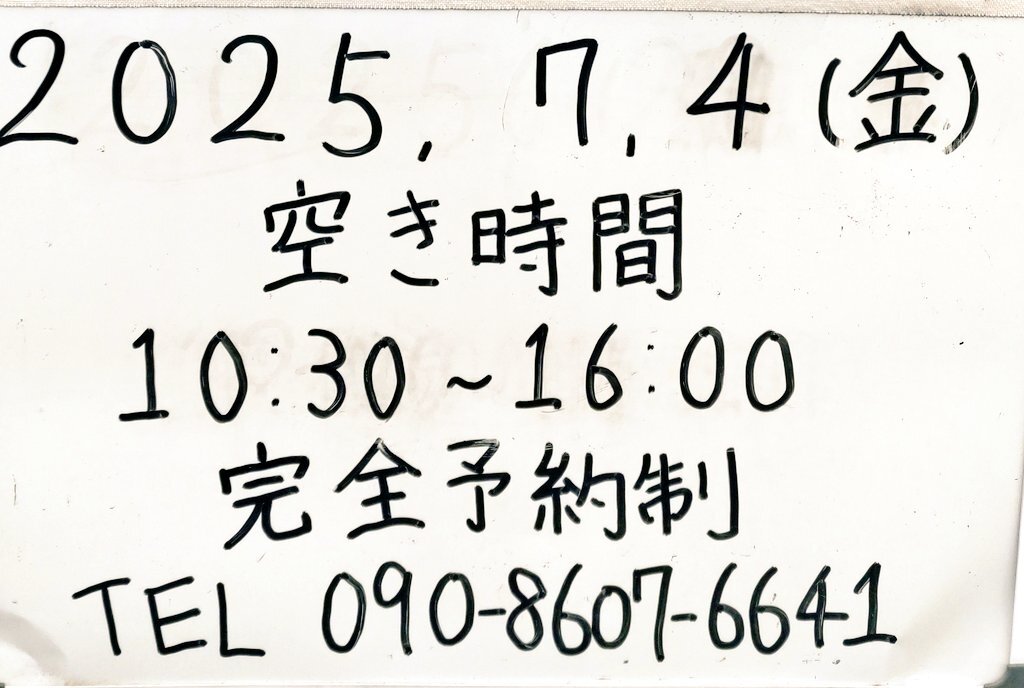 2025.7.4(金)
空き時間
10:30~16:00
完全予約制
TEL 090-8607-6641